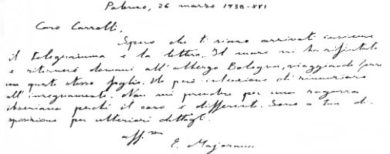 Palermo, 26 marzo 1938-XVI
Caro Carrelli,
Spero che ti siano arrivati insieme
il telegramma e la lettera. Il mare mi ha rifiutato
e ritornerò domani all'albergo Bologna, viaggiando forse
con questo stesso foglio. Ho però intenzione di rinunciare
all'insegnamento. Non mi prendere per una ragazza
ibseniana perché il caso è differente. Sono a tua di-
sposizione per ulteriori dettagli.
aff.mo
E. Majorana